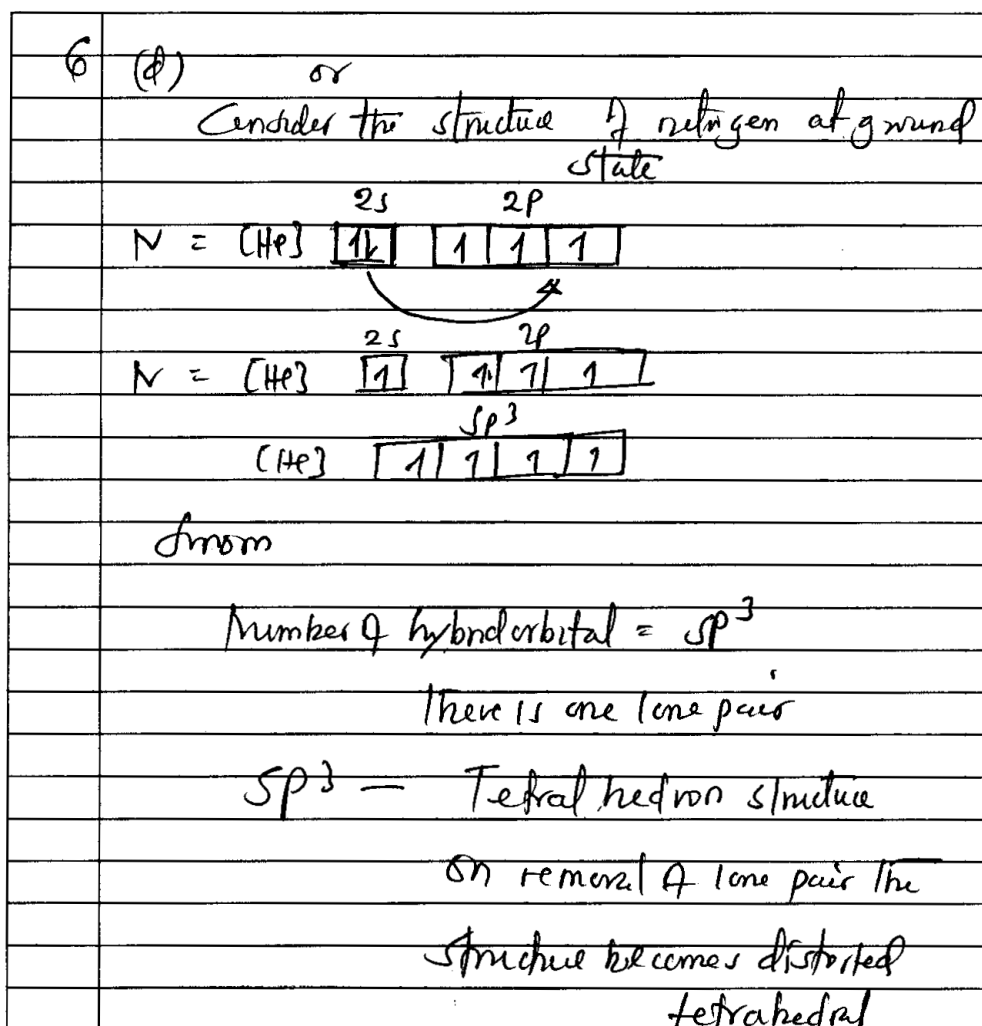 6 (d) or
Consider the structure of nitrogen at ground
state
2s 2p
N = [He] 1L 1 1 1
2s 2p
N = [He] 1 1L 1 1
sp³
[He] 1 1 1 1
from
Number of hybrid orbital = sp³
There is one lone pair
sp³ — Tetral hedron structure
On removal of lone pair the
structure becomes distorted
tetrahedral